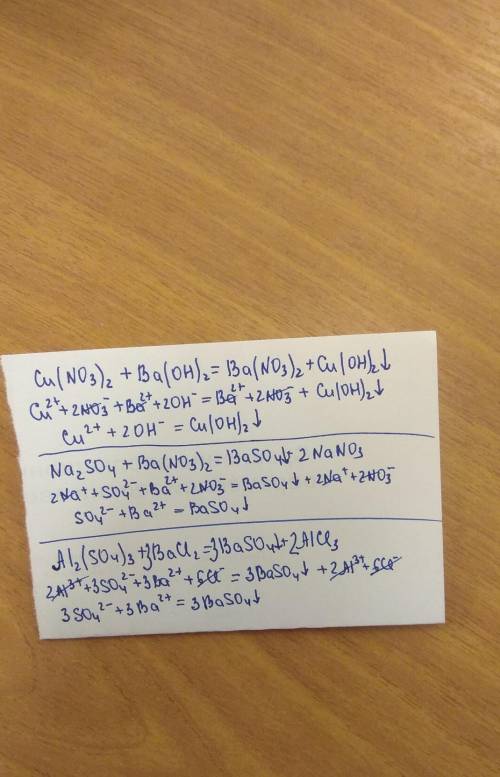 Cu(NO₃)₂ + Ba(OH)₂ = Ba(NO₃)₂ + Cu(OH)₂↓
Cu²⁺ + 2NO₃⁻ + Ba²⁺ + 2OH⁻ = Ba²⁺ + 2NO₃⁻ + Cu(OH)₂↓
Cu²⁺ + 2OH⁻ = Cu(OH)₂↓
Na₂SO₄ + Ba(NO₃)₂ = BaSO₄↓ + 2NaNO₃
2Na⁺ + SO₄²⁻ + Ba²⁺ + 2NO₃⁻ = BaSO₄↓ + 2Na⁺ + 2NO₃⁻
SO₄²⁻ + Ba²⁺ = BaSO₄↓
Al₂(SO₄)₃ + 3BaCl₂ = 3BaSO₄↓ + 2AlCl₃
2Al³⁺ + 3SO₄²⁻ + 3Ba²⁺ + 6Cl⁻ = 3BaSO₄↓ + 2Al³⁺ + 6Cl⁻
3SO₄²⁻ + 3Ba²⁺ = 3BaSO₄↓